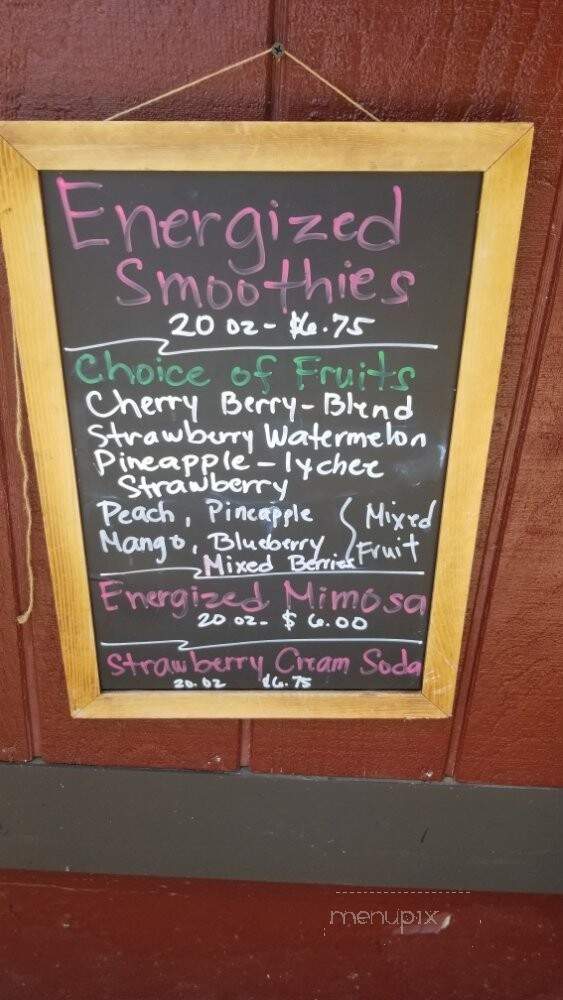 Energized
Smoothies
20 oz - $6.75
Choice of Fruits
Cherry Berry-Blend
Strawberry Watermelon
Pineapple - lychee
Strawberry
Peach, Pineapple { Mixed
Mango, Blueberry Fruit
Mixed Berries
Energized Mimosa
20 oz. $6.00
Strawberry Cream Soda
20. oz $6.75
menupix